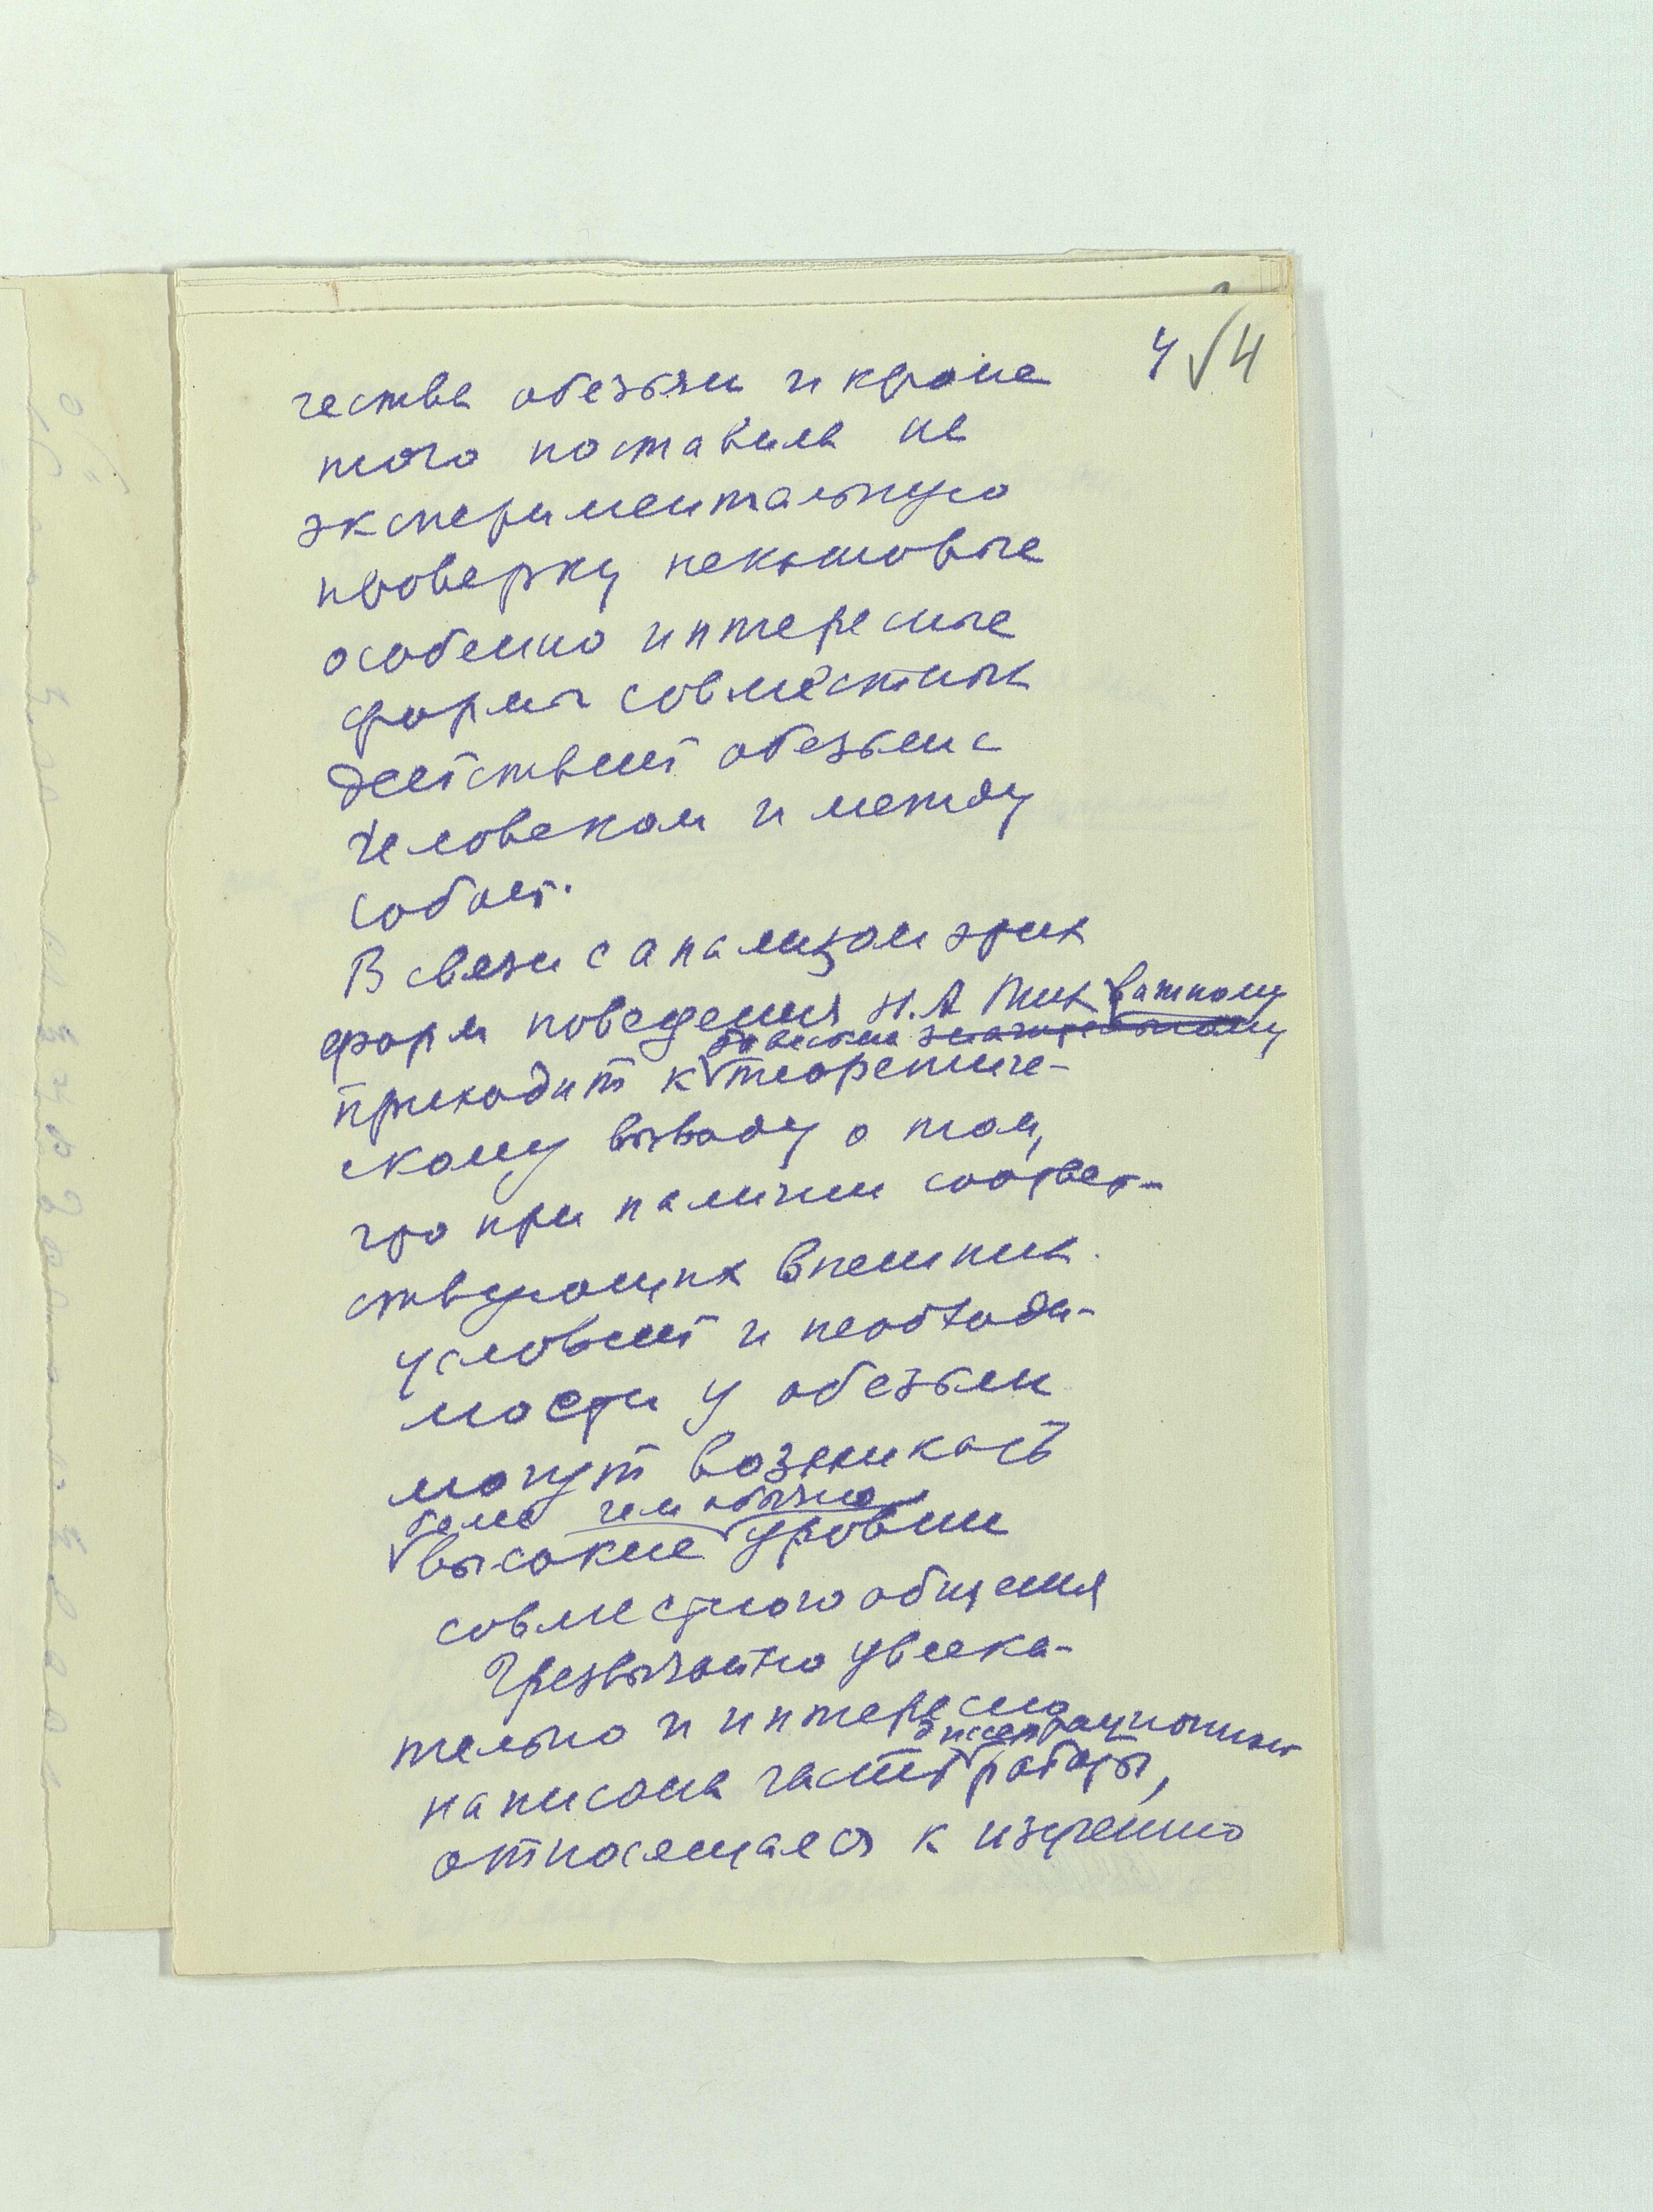 4 √4
чества обезьян и кроме
того поставила на
экспериментальную
проверку некоторые
особенно интересные
формы совместных
действий обезьян с
человеком и между
собой.
В связи с анализом этих
форм поведения Н.А. Тих важному
приходит к теоретиче-
скому выводу о том,
что при наличии соответ-
ствующих внешних
условий и необходи-
мости у обезьян
могут возникать
более чем обычно
высокие уровни
совместного общения
Чрезвычайно увлека-
тельно и интересно
диссертационной
написана часть работы,
относящаяся к изучению